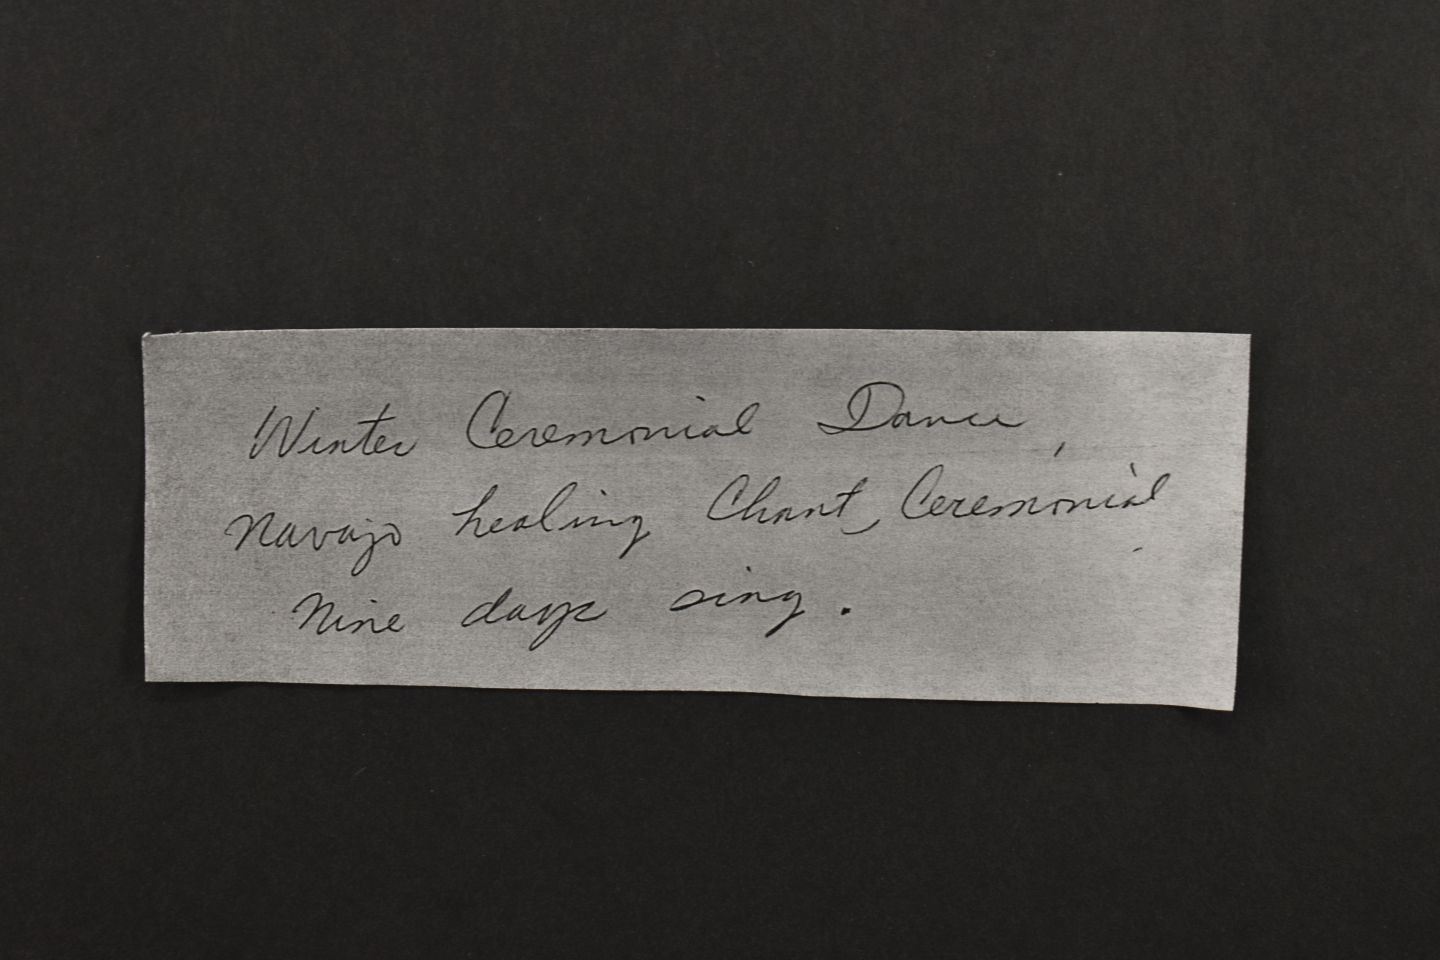 Winter Ceremonial Dance,
Navajo healing Chant Ceremonial
Nine days sing.